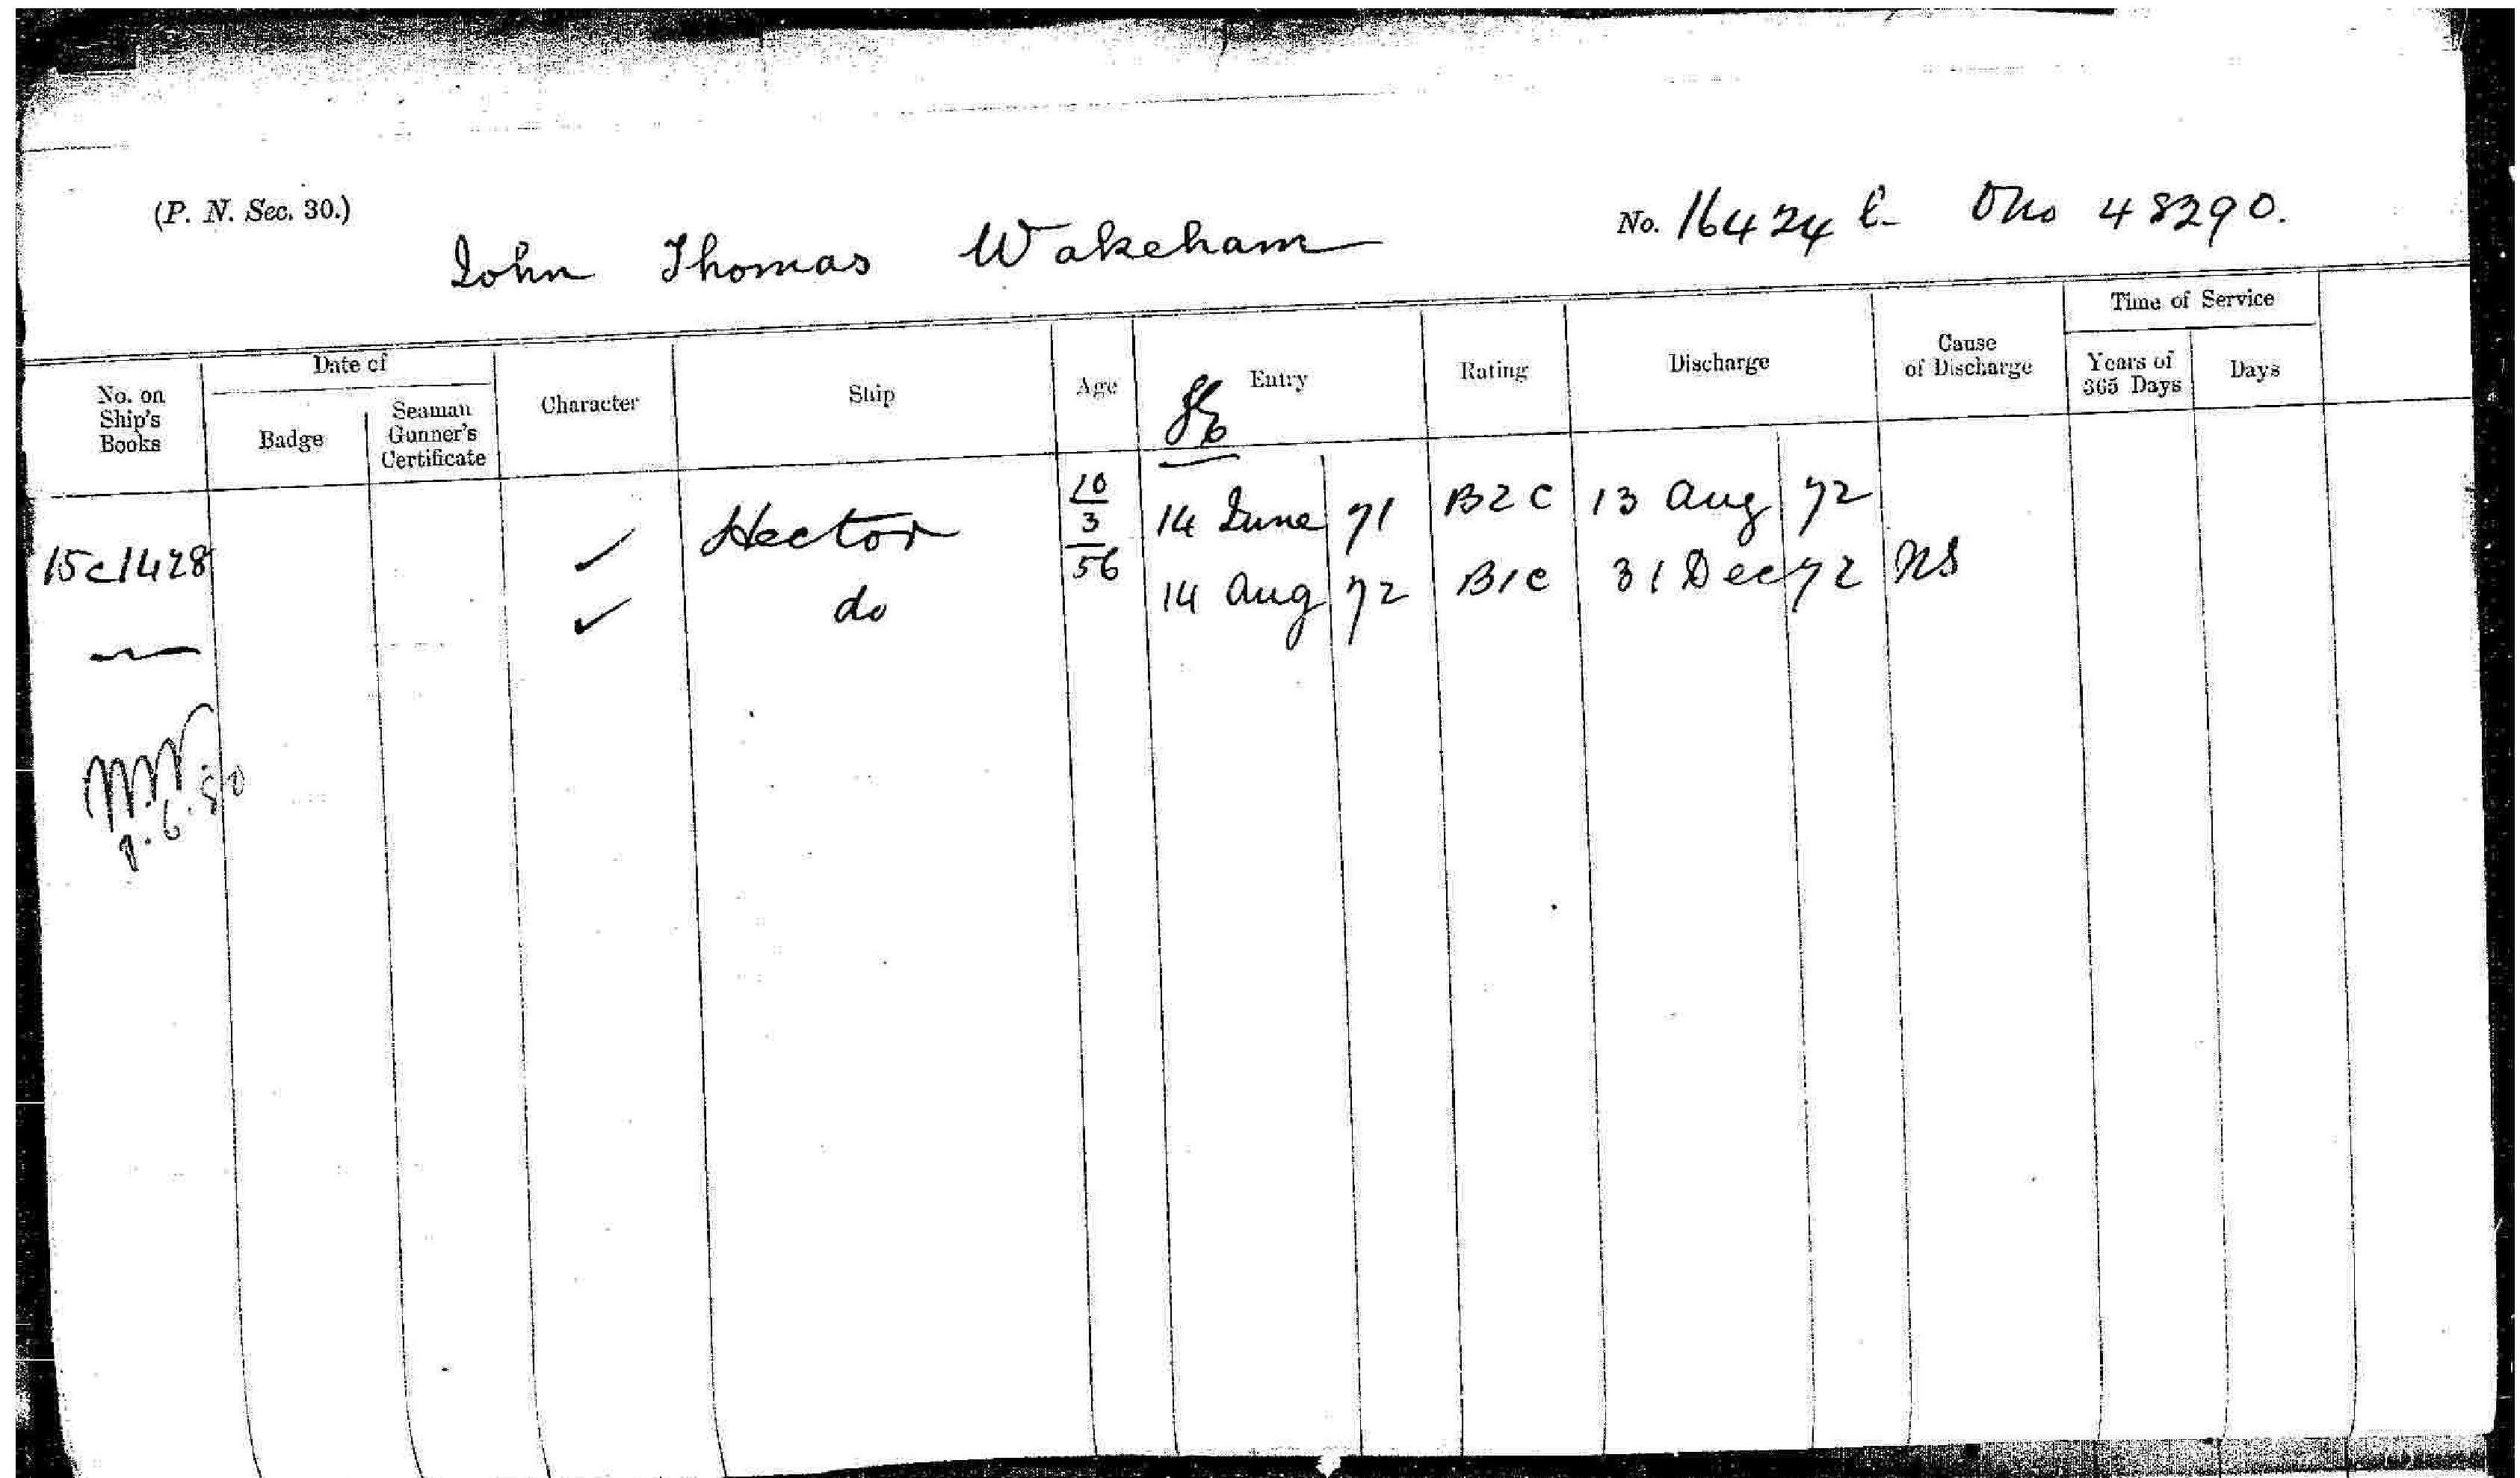 (P. N. Sec. 30.)
No. 16424 C ONo 48290.
John Thomas Wakeham
No. on Ship's Books
Date of
Badge
Seaman Gunner's Certificate
Character
Ship
Age
Entry
Rating
Discharge
Cause of Discharge
Time of Service
Years of 365 Days
Days
15c1428 ✓ Hector 10/3/56 14 June 71 B2C 13 Aug 72
— ✓ do 14 Aug 72 B1C 31 Dec 72 NS